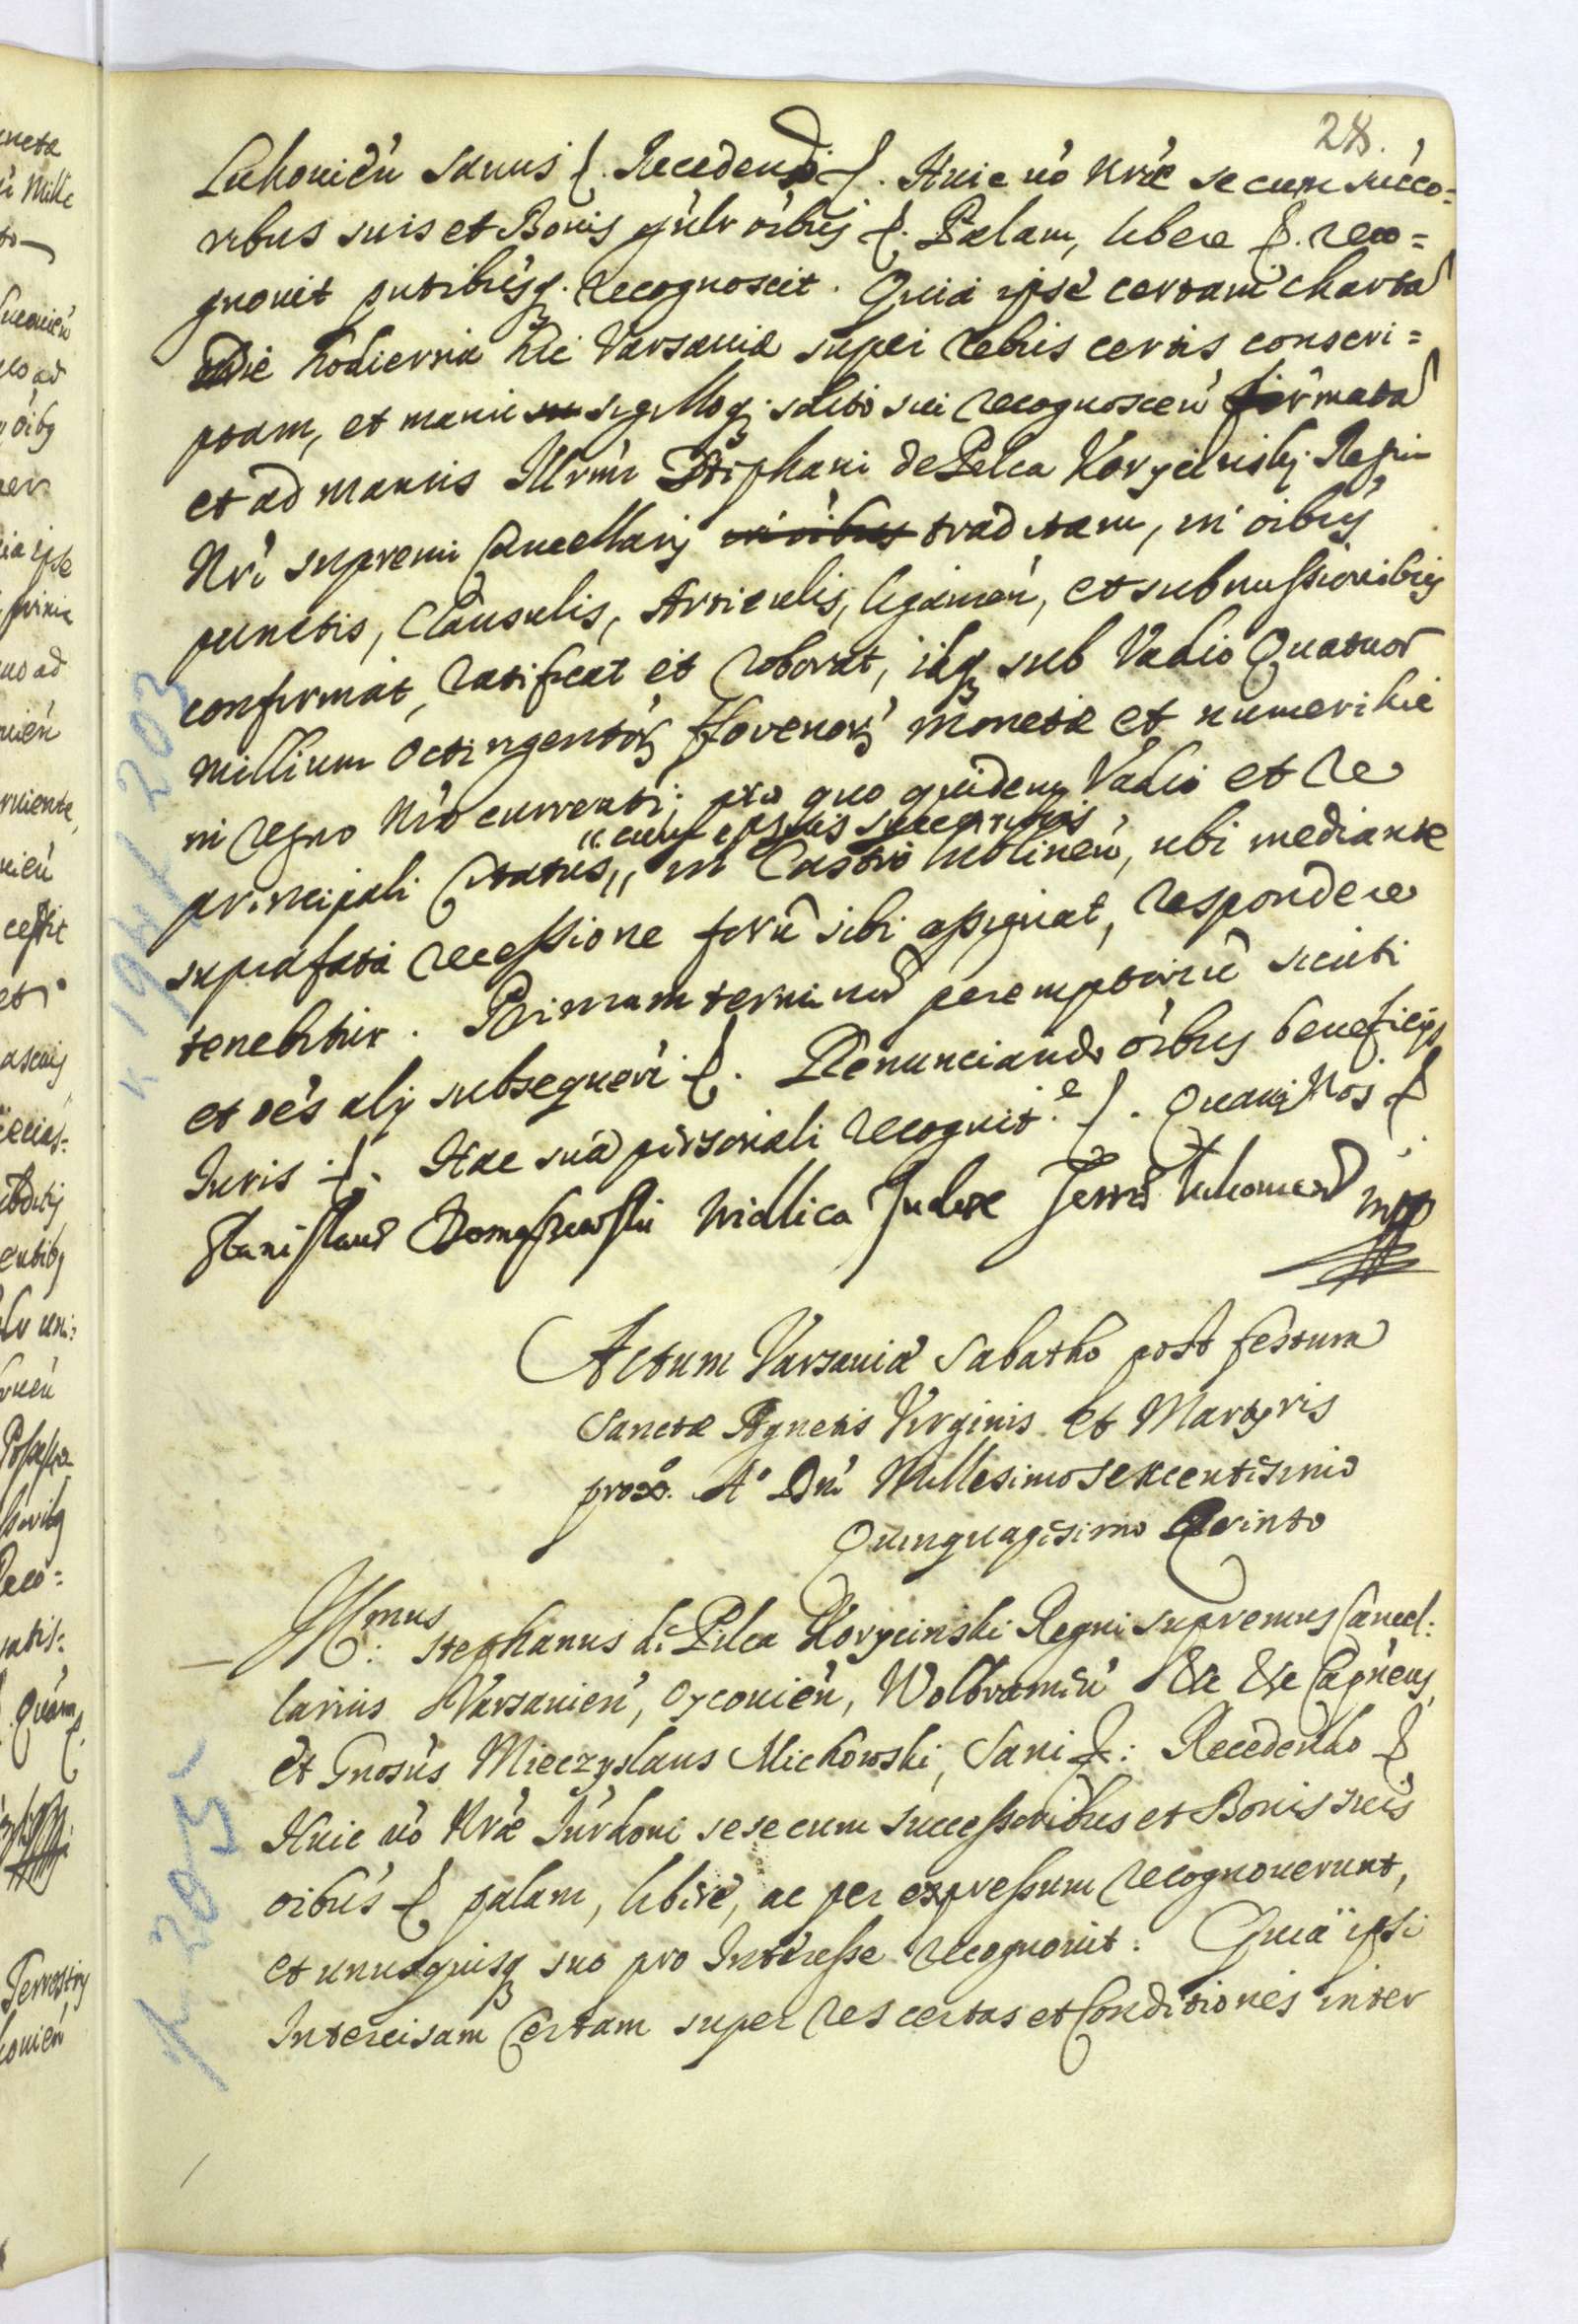 28.
Lukouień sanus f. Recedendo f. Huic vo Nrae se cum succo=
ribus suis et Bonis gnlr oibus f. Palam, libere f. reco=
gnouit pntibusq. recognoscit. Quia ipse certam charta
die hodierna hic Varsauiae super rebus certis conscri=
ptam, et manu sigilloq; solito sui recognoscen firmata
et ad manus Illrmi Stephani de Pilca Korycinskij Regni
Nri supremi Cancellarij traditam, in oibus
punctis, Clausulis, Articulis, ligamen, et submissionibus
confirmat, ratificat et roborat, idq sub Vadio Quatuor
millium octingentor florenor monetae et numeri hic
in regno nro currenti; pro quo quidem Vadio et re
"cum ipsius succoribus
principali Citatus," in Castro Lublinen, ubi mediante
suprafata recessione foru sibi assignat, respondere
tenebitur. Primam terminu peremptoriu sicuti
et oes alij subsequen f. Renunciando oibus beneficijs
Iuris f. Hac sua personali recognit.e f. Quam Nos f
Stanislaus Domaszewski Nidlica Judex Terrs Lukouien mpp
Actum Varsauiae Sabatho post festum
Sanctae Agnetis Virginis et Martyris
prox. Ao Dni Millesimo sexcentesimo
Quinquagesimo Qvinto
Illmus: Stephanus de Pilca Korycinski Regni supremus Cancel:
larius Varsauien, Oycouien, Wolbramen &c &c Capneus,
et Gnosus Mieczyslaus Michowski, Sani f: Recedendo f
Huic vo Nrae Iurdoni sese cum successoribus et Bonis suis
oibus f palam, libere, ac per expressum recognouerunt,
et unusquisq suo pro Interesse recognouit. Quia ipsi
Intercisam Certam super res certas et Conditiones inter
k 205